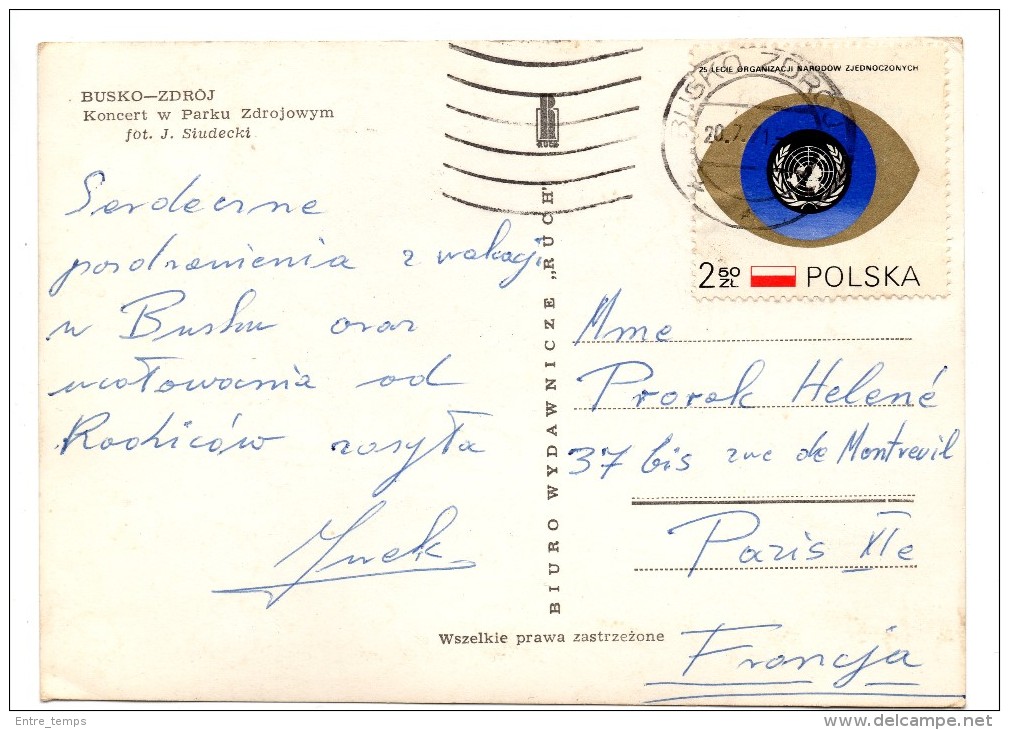 BUSKO—ZDRÓJ
Koncert w Parku Zdrojowym
fot. J. Siudecki
Serdeczne
pozdrowienia z wakacji
w Busku oraz
ucałowania od
Rodziców zasyła
BIURO WYDAWNICZE „RUCH"
RUCH
BUSKO ZDRÓJ
20.7.71
25 LECIE ORGANIZACJI NARODÓW ZJEDNOCZONYCH
2 50 ZŁ POLSKA
Mme
Prorok Helené
37 bis rue de Montreuil
Paris XIe
Francja
Wszelkie prawa zastrzeżone
Entre_temps
delcampe.net